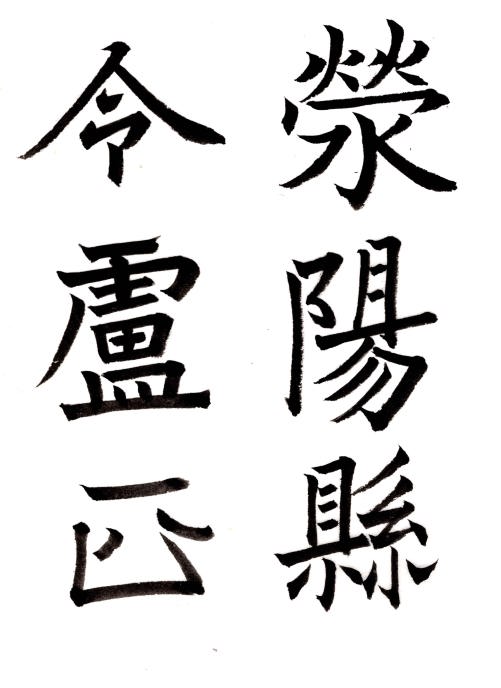 滎陽縣
令盧匹